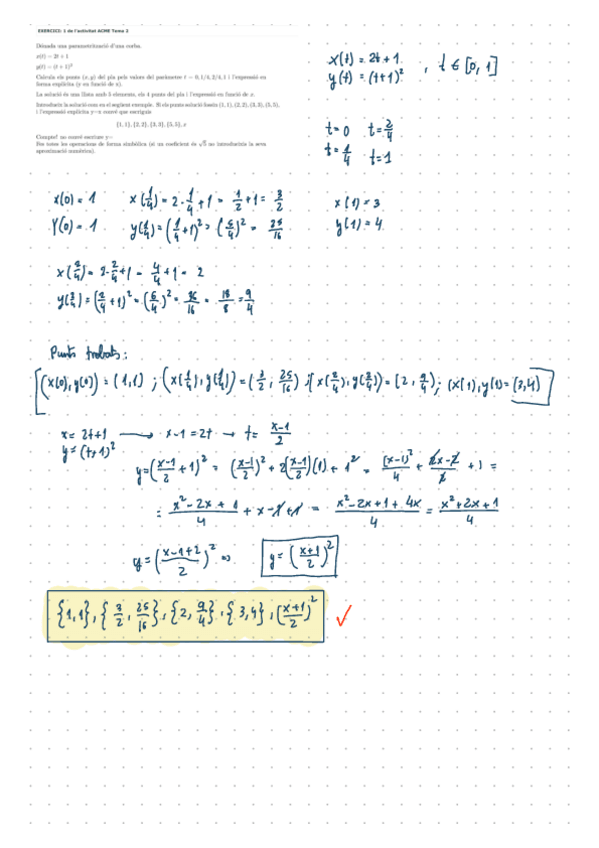 EXERCICI: 1 de l'activitat ACME Tema 2
Donada una parametrització d'una corba.
x(t) = 2t + 1
y(t) = (t + 1)²
Calcula els punts (x, y) del pla pels valors del paràmetre t = 0, 1/4, 2/4, 1 i l'expressió en
forma explícita (y en funció de x).
La solució és una llista amb 5 elements, els 4 punts del pla i l'expressió en funció de x.
Introduïu la solució com en el següent exemple. Si els punts solució fossin (1, 1), (2, 2), (3, 3), (5, 5),
i l'expressió explícita y=x caldrà que escrigui
{1, 1}, {2, 2}, {3, 3}, {5, 5}, x
Compte! no caldrà escriure y=
Feu totes les operacions de forma simbòlica (si un coeficient és √5 no introduiu la seva
aproximació numèrica).
x(t) = 2t + 1
y(t) = (t+1)² , t ∈ [0, 1]
t=0 t=2/4
t=1/4 t=1
x(0) = 1 x(1/4) = 2·1/4 + 1 = 1/2 + 1 = 3/2 x(1) = 3
y(0) = 1 y(1/4) = (1/4 + 1)² = (5/4)² = 25/16 y(1) = 4
x(2/4) = 2·2/4 + 1 = 4/4 + 1 = 2
y(2/4) = (2/4 + 1)² = (6/4)² = 36/16 = 18/8 = 9/4
Punts trobats:
(x(0), y(0)) = (1,1) ; (x(1/4), y(1/4)) = (3/2, 25/16) ; (x(2/4), y(2/4)) = (2, 9/4) ; (x(1), y(1)) = (3,4)
x = 2t+1 → x-1 = 2t → t = x-1/2
y = (t+1)²
y = (x-1/2 + 1)² = (x-1/2)² + 2(x-1/2)(1) + 1² = (x-1)²/4 + 2x-2/2 + 1 =
= x² - 2x + 1/4 + x - 1 + 1 = x² - 2x + 1 + 4x/4 = x² + 2x + 1/4
y = (x-1+2/2)² ⇒ y = (x+1/2)²
{1,1}, {3/2, 25/16}, {2, 9/4}, {3,4}, (x+1/2)² ✓